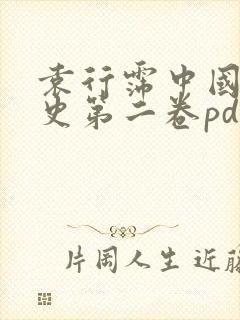 袁行霈中國
史第二卷pd
片岡人生近藤